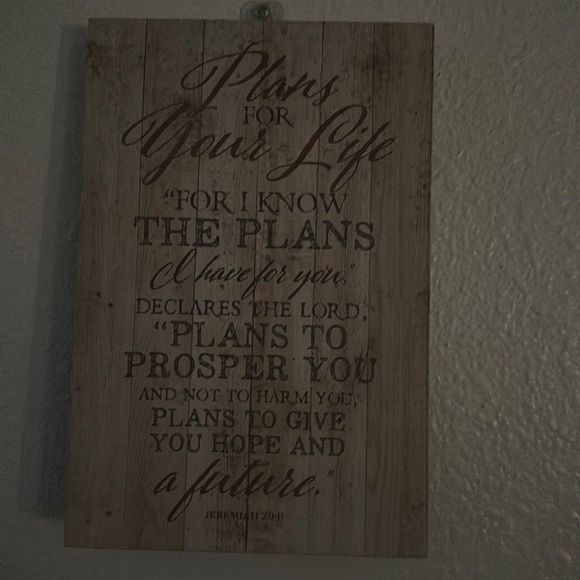 Plans
FOR
Your Life
"FOR I KNOW
THE PLANS
I have for you,"
DECLARES THE LORD,
"PLANS TO
PROSPER YOU
AND NOT TO HARM YOU,
PLANS TO GIVE
YOU HOPE AND
a future."
JEREMIAH 29:11